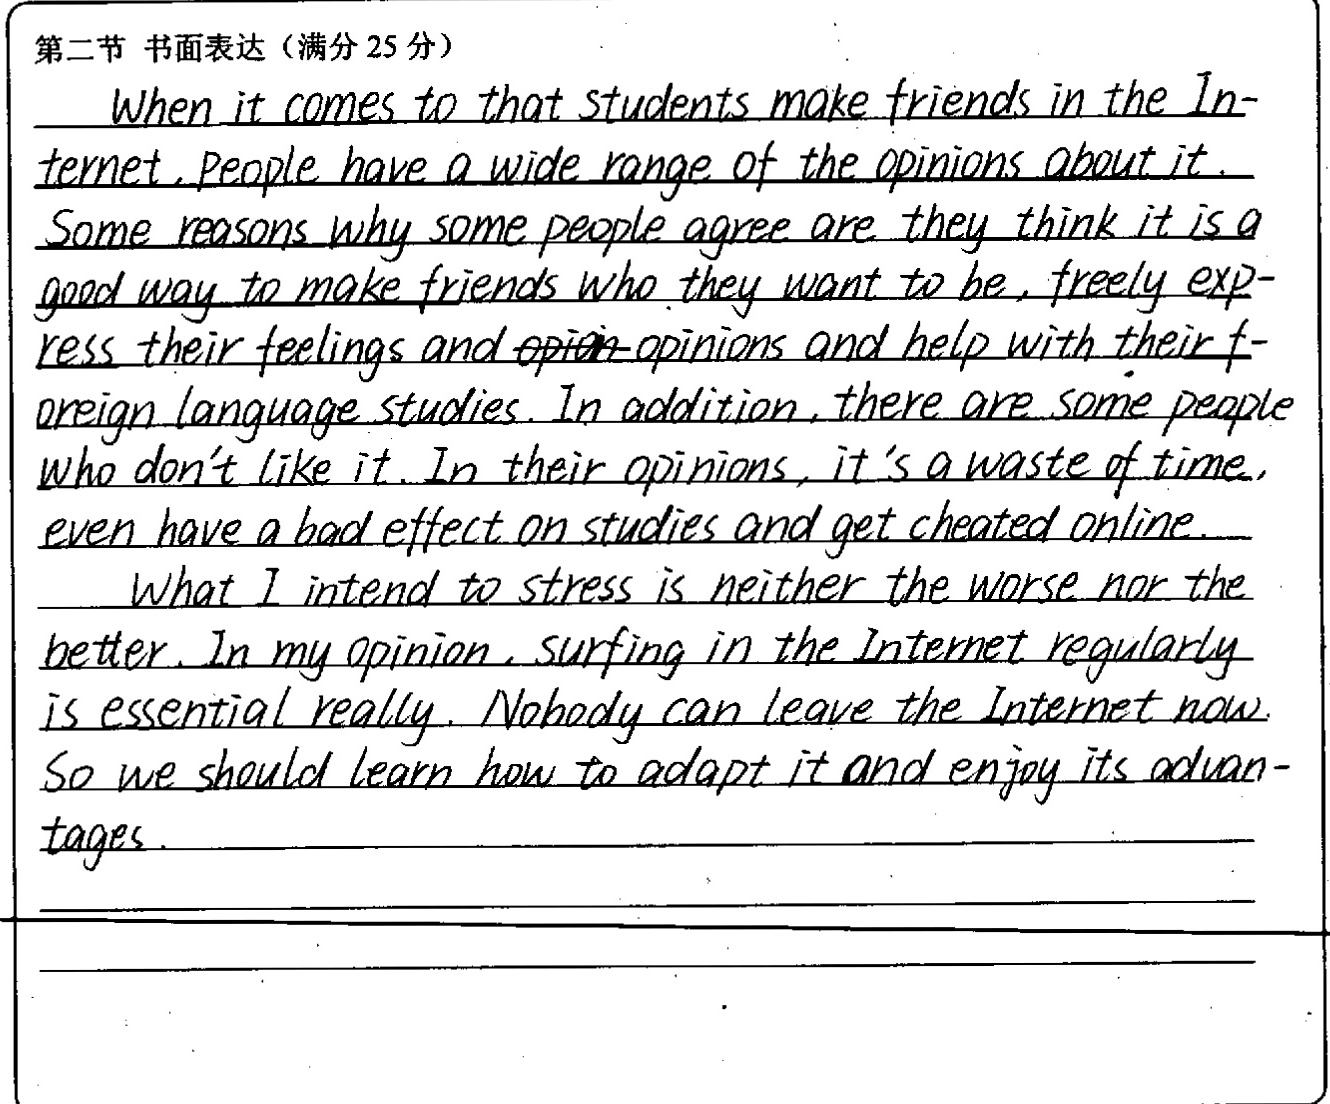 第二节 书面表达（满分 25 分）
When it comes to that students make friends in the In-
ternet, people have a wide range of the opinions about it.
Some reasons why some people agree are they think it is a
good way to make friends who they want to be, freely exp-
ress their feelings and opinions and help with their f-
oreign language studies. In addition, there are some people
who don't like it. In their opinions, it's a waste of time,
even have a bad effect on studies and get cheated online.
What I intend to stress is neither the worse nor the
better. In my opinion, surfing in the Internet regularly
is essential really. Nobody can leave the Internet now.
So we should learn how to adapt it and enjoy its advan-
tages.